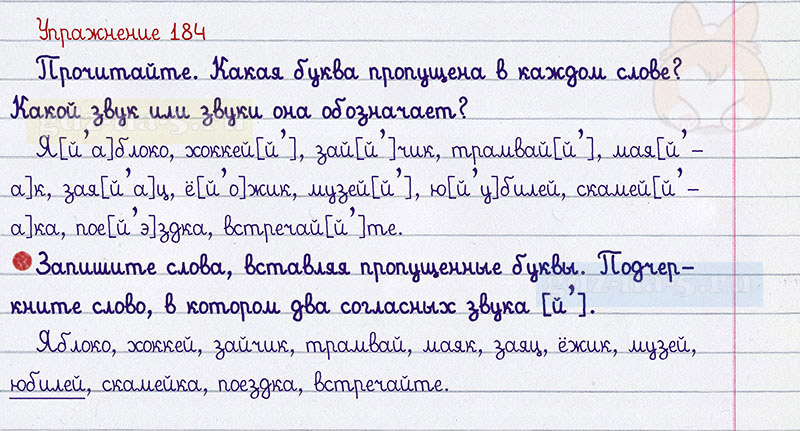 Упражнение 184
Прочитайте. Какая буква пропущена в каждом слове?
Какой звук или звуки она обозначает?
Я[й’а]блоко, хоккей[й’], зай[й’]чик, трамвай[й’], мая[й’-
а]к, зая[й’а]ц, ё[й’о]жик, музей[й’], ю[й’у]билей, скамей[й’-
а]ка, пое[й’э]здка, встречай[й’]те.
Запишите слова, вставляя пропущенные буквы. Подчер-
кните слово, в котором два согласных звука [й’].
Яблоко, хоккей, зайчик, трамвай, маяк, заяц, ёжик, музей,
юбилей, скамейка, поездка, встречайте.